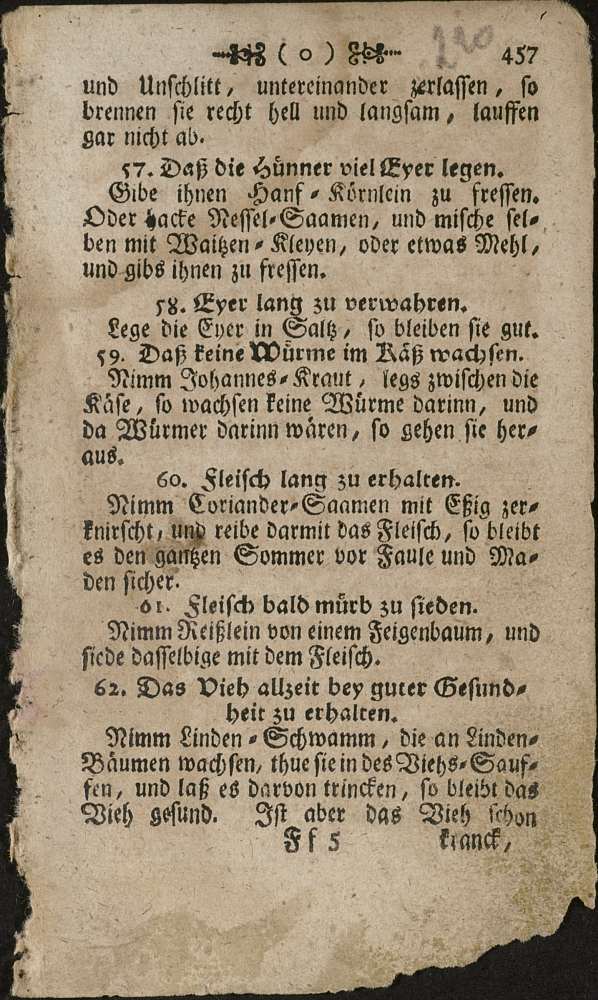 ( o ) 220 457
und Unschlitt, untereinander zerlassen, so
brennen sie recht hell und langsam, lauffen
gar nicht ab.
57. Daß die Hünner viel Eyer legen.
Gibe ihnen Hanf-Körnlein zu fressen.
Oder hacke Nessel-Saamen, und mische sel-
ben mit Waitzen-Kleyen, oder etwas Mehl,
und gibs ihnen zu fressen.
58. Eyer lang zu verwahren.
Lege die Eyer in Saltz, so bleiben sie gut.
59. Daß keine Würme im Käß wachsen.
Nimm Johannes-Kraut, legs zwischen die
Käse, so wachsen keine Würme darinn, und
da Würmer darinn wären, so gehen sie her-
aus.
60. Fleisch lang zu erhalten.
Nimm Coriander-Saamen mit Eßig zer-
knirscht, und reibe darmit das Fleisch, so bleibt
es den gantzen Sommer vor Faule und Ma-
den sicher.
61. Fleisch bald mürb zu sieden.
Nimm Reißlein von einem Feigenbaum, und
siede dasselbige mit dem Fleisch.
62. Das Vieh allzeit bey guter Gesund-
heit zu erhalten.
Nimm Linden-Schwamm, die an Linden-
Bäumen wachsen, thue sie in des Viehs-Sauf-
fen, und laß es darvon trincken, so bleibt das
Vieh gesund. Ist aber das Vieh schon
Ff 5 kranck,